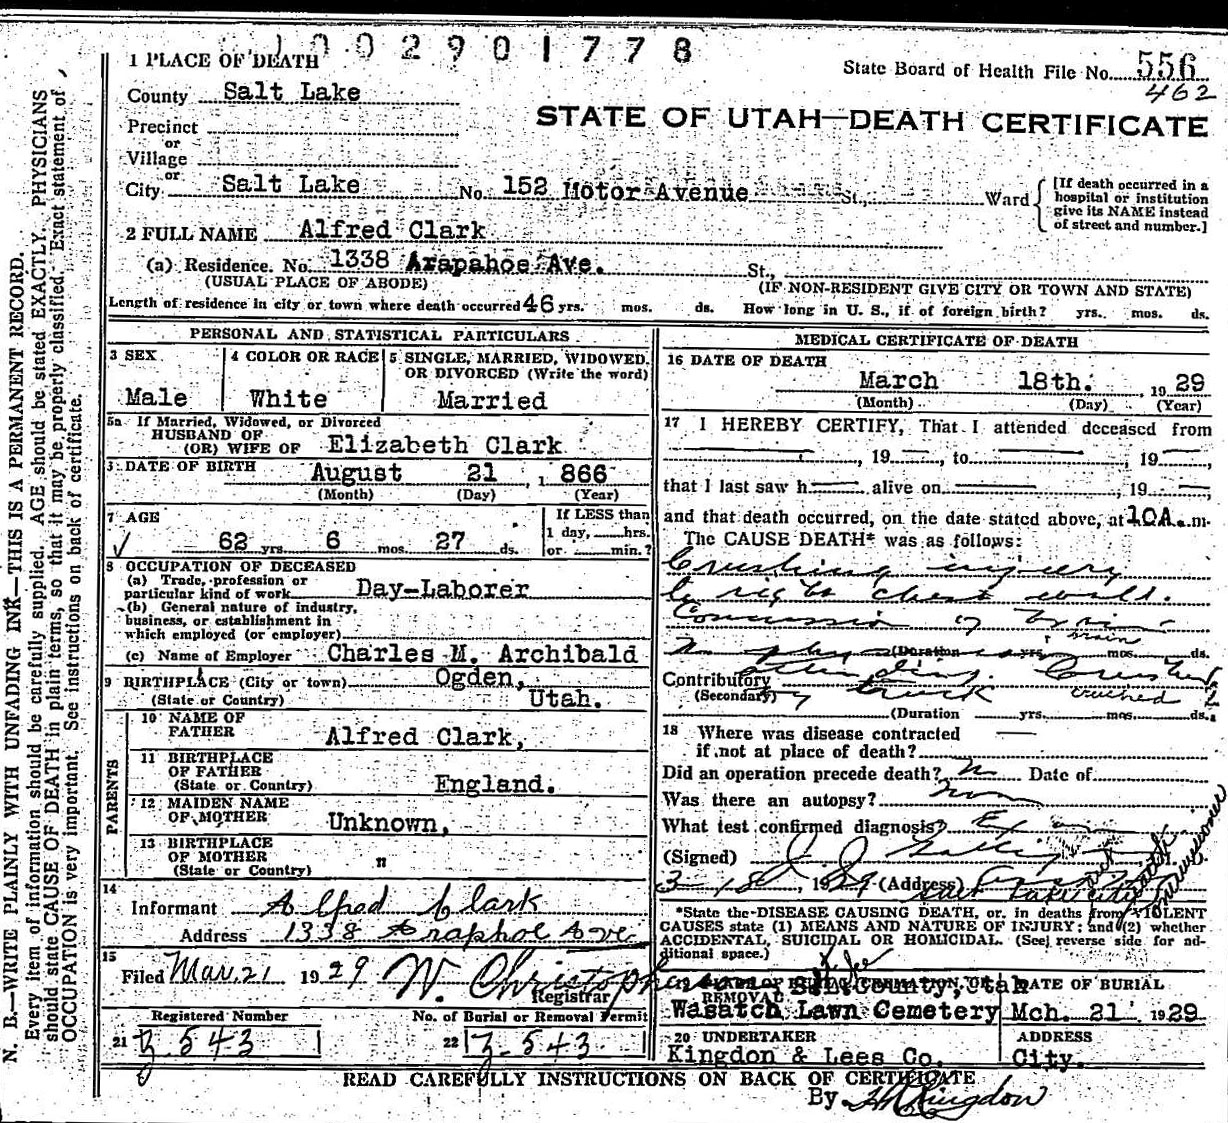 1002901778
1 PLACE OF DEATH
State Board of Health File No. 556
462
County Salt Lake
STATE OF UTAH—DEATH CERTIFICATE
Precinct
or
Village
or
City Salt Lake No. 152 Motor Avenue St., Ward
[If death occurred in a
hospital or institution
give its NAME instead
of street and number.]
2 FULL NAME Alfred Clark
(a) Residence. No. 1338 Arapahoe Ave. St.,
(USUAL PLACE OF ABODE) (IF NON-RESIDENT GIVE CITY OR TOWN AND STATE)
Length of residence in city or town where death occurred 46 yrs. mos. ds. How long in U. S., if of foreign birth? yrs. mos. ds.
PERSONAL AND STATISTICAL PARTICULARS
3 SEX
Male
4 COLOR OR RACE
White
5 SINGLE, MARRIED, WIDOWED,
OR DIVORCED (Write the word)
Married
5a If Married, Widowed, or Divorced
HUSBAND OF
(OR) WIFE OF Elizabeth Clark
DATE OF BIRTH August 21, 1866
(Month) (Day) (Year)
7 AGE
62 yrs. 6 mos. 27 ds.
If LESS than
1 day, hrs.
or min.?
8 OCCUPATION OF DECEASED
(a) Trade, profession or
particular kind of work Day-Laborer
(b) General nature of industry,
business, or establishment in
which employed (or employer)
(c) Name of Employer Charles M. Archibald
9 BIRTHPLACE (City or town) Ogden,
(State or Country) Utah.
PARENTS
10 NAME OF
FATHER Alfred Clark,
11 BIRTHPLACE
OF FATHER
(State or Country) England.
12 MAIDEN NAME
OF MOTHER Unknown,
13 BIRTHPLACE
OF MOTHER
(State or Country) "
14
Informant Alfred Clark
Address 1338 Araphoe Ave
15
Filed Mar. 21 1929 W. Christopherson
Registrar
Registered Number
21 Z 543
No. of Burial or Removal Permit
22 Z-543
MEDICAL CERTIFICATE OF DEATH
16 DATE OF DEATH
March 18th. 1929
(Month) (Day) (Year)
17 I HEREBY CERTIFY, That I attended deceased from
, 19 , to , 19
that I last saw h alive on , 19
and that death occurred, on the date stated above, at 10A.m.
The CAUSE DEATH* was as follows:
Crushing injury
to right chest wall.
Concussion of brain
brain
No physician
(Duration yrs. mos. ds.
Contributory attending. Crushed
(Secondary) by truck crushed
(Duration yrs. mos. ds.
18 Where was disease contracted
if not at place of death?
Did an operation precede death? No Date of
Was there an autopsy? None
What test confirmed diagnosis?
(Signed) J. J.
3-18, 1929 (Address)
Salt Lake City
*State the DISEASE CAUSING DEATH, or, in deaths from VIOLENT
CAUSES state (1) MEANS AND NATURE OF INJURY; and (2) whether
ACCIDENTAL, SUICIDAL OR HOMICIDAL. (See reverse side for ad-
ditional space.)
REMOVAL
County, Utah
Wasatch Lawn Cemetery
DATE OF BURIAL
Mch. 21 1929
20 UNDERTAKER
Kingdon & Lees Co.
ADDRESS
City.
READ CAREFULLY INSTRUCTIONS ON BACK OF CERTIFICATE
By Kingdon
N. B.—WRITE PLAINLY WITH UNFADING INK—THIS IS A PERMANENT RECORD.
Every item of information should be carefully supplied. AGE should be stated EXACTLY. PHYSICIANS
should state CAUSE OF DEATH in plain terms, so that it may be properly classified. Exact statement of
OCCUPATION is very important. See instructions on back of certificate.